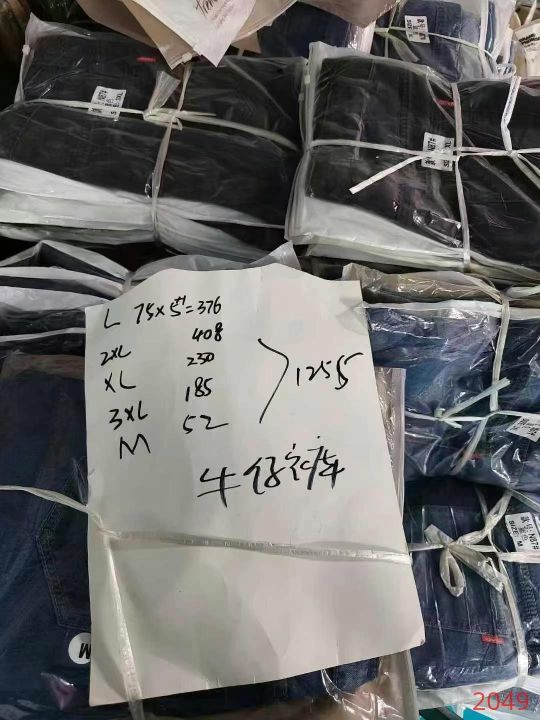 L 75×5+1=376
2XL 408
XL 230
3XL 185
M 52
1255
牛仔裤
M
SIZE: M
2049